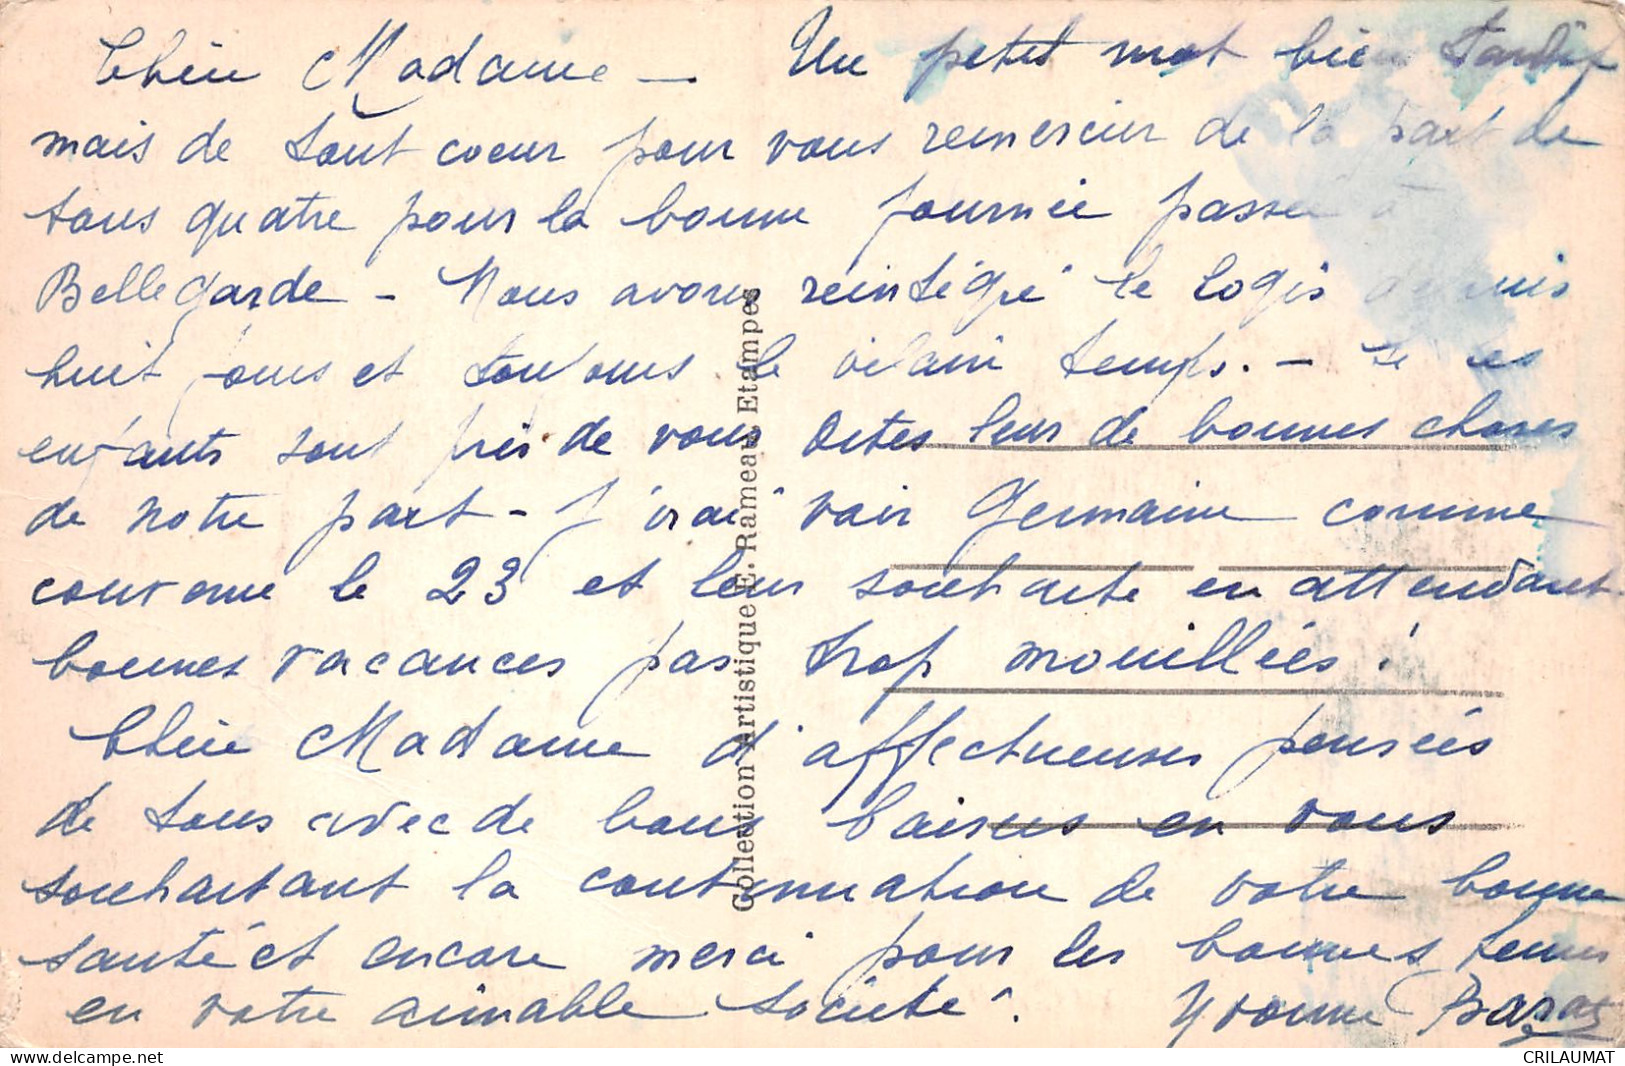 Chère Madame – Un petit mot bien tardif
mais de tout coeur pour vous remercier de la part de
tous quatre pour la bonne journée passée à
Bellegarde – Nous avons réintégré le logis depuis
huit jours et toujours le vilain temps. – Si les
enfants sont près de vous Dites leur de bonnes choses
de notre part – J'irai voir Germaine comme
convenu le 23 et leur souhaite en attendant
bonnes vacances pas trop mouillées !
Chère Madame d'affectueuses pensées
de tous avec de bons baisers en vous
souhaitant la continuation de votre bonne
santé et encore merci pour les bonnes heures
en votre aimable société.
Yvonne
Collection Artistique E. Rameau Etampes
CRILAUMAT